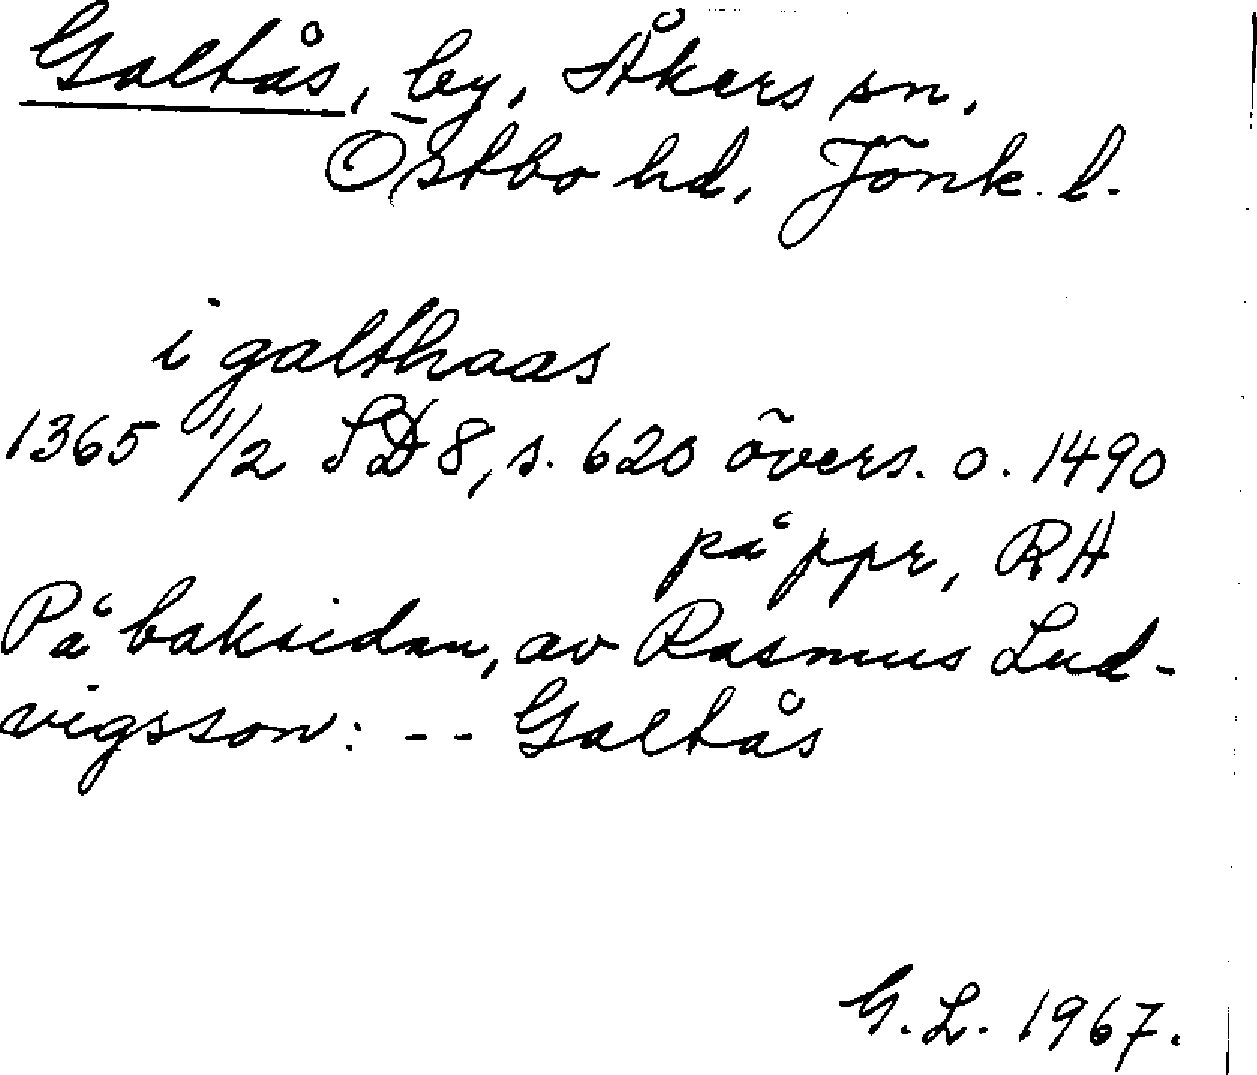 Galtås, by, Åkers sn.
Östbo hd, Jönk. l.
i galthaas
1365 1/2 SD 8, s. 620 övers. o. 1490
på ppr, RA
På baksidan, av Rasmus Lud-
vigsson: -- Galtås
G. L. 1967.